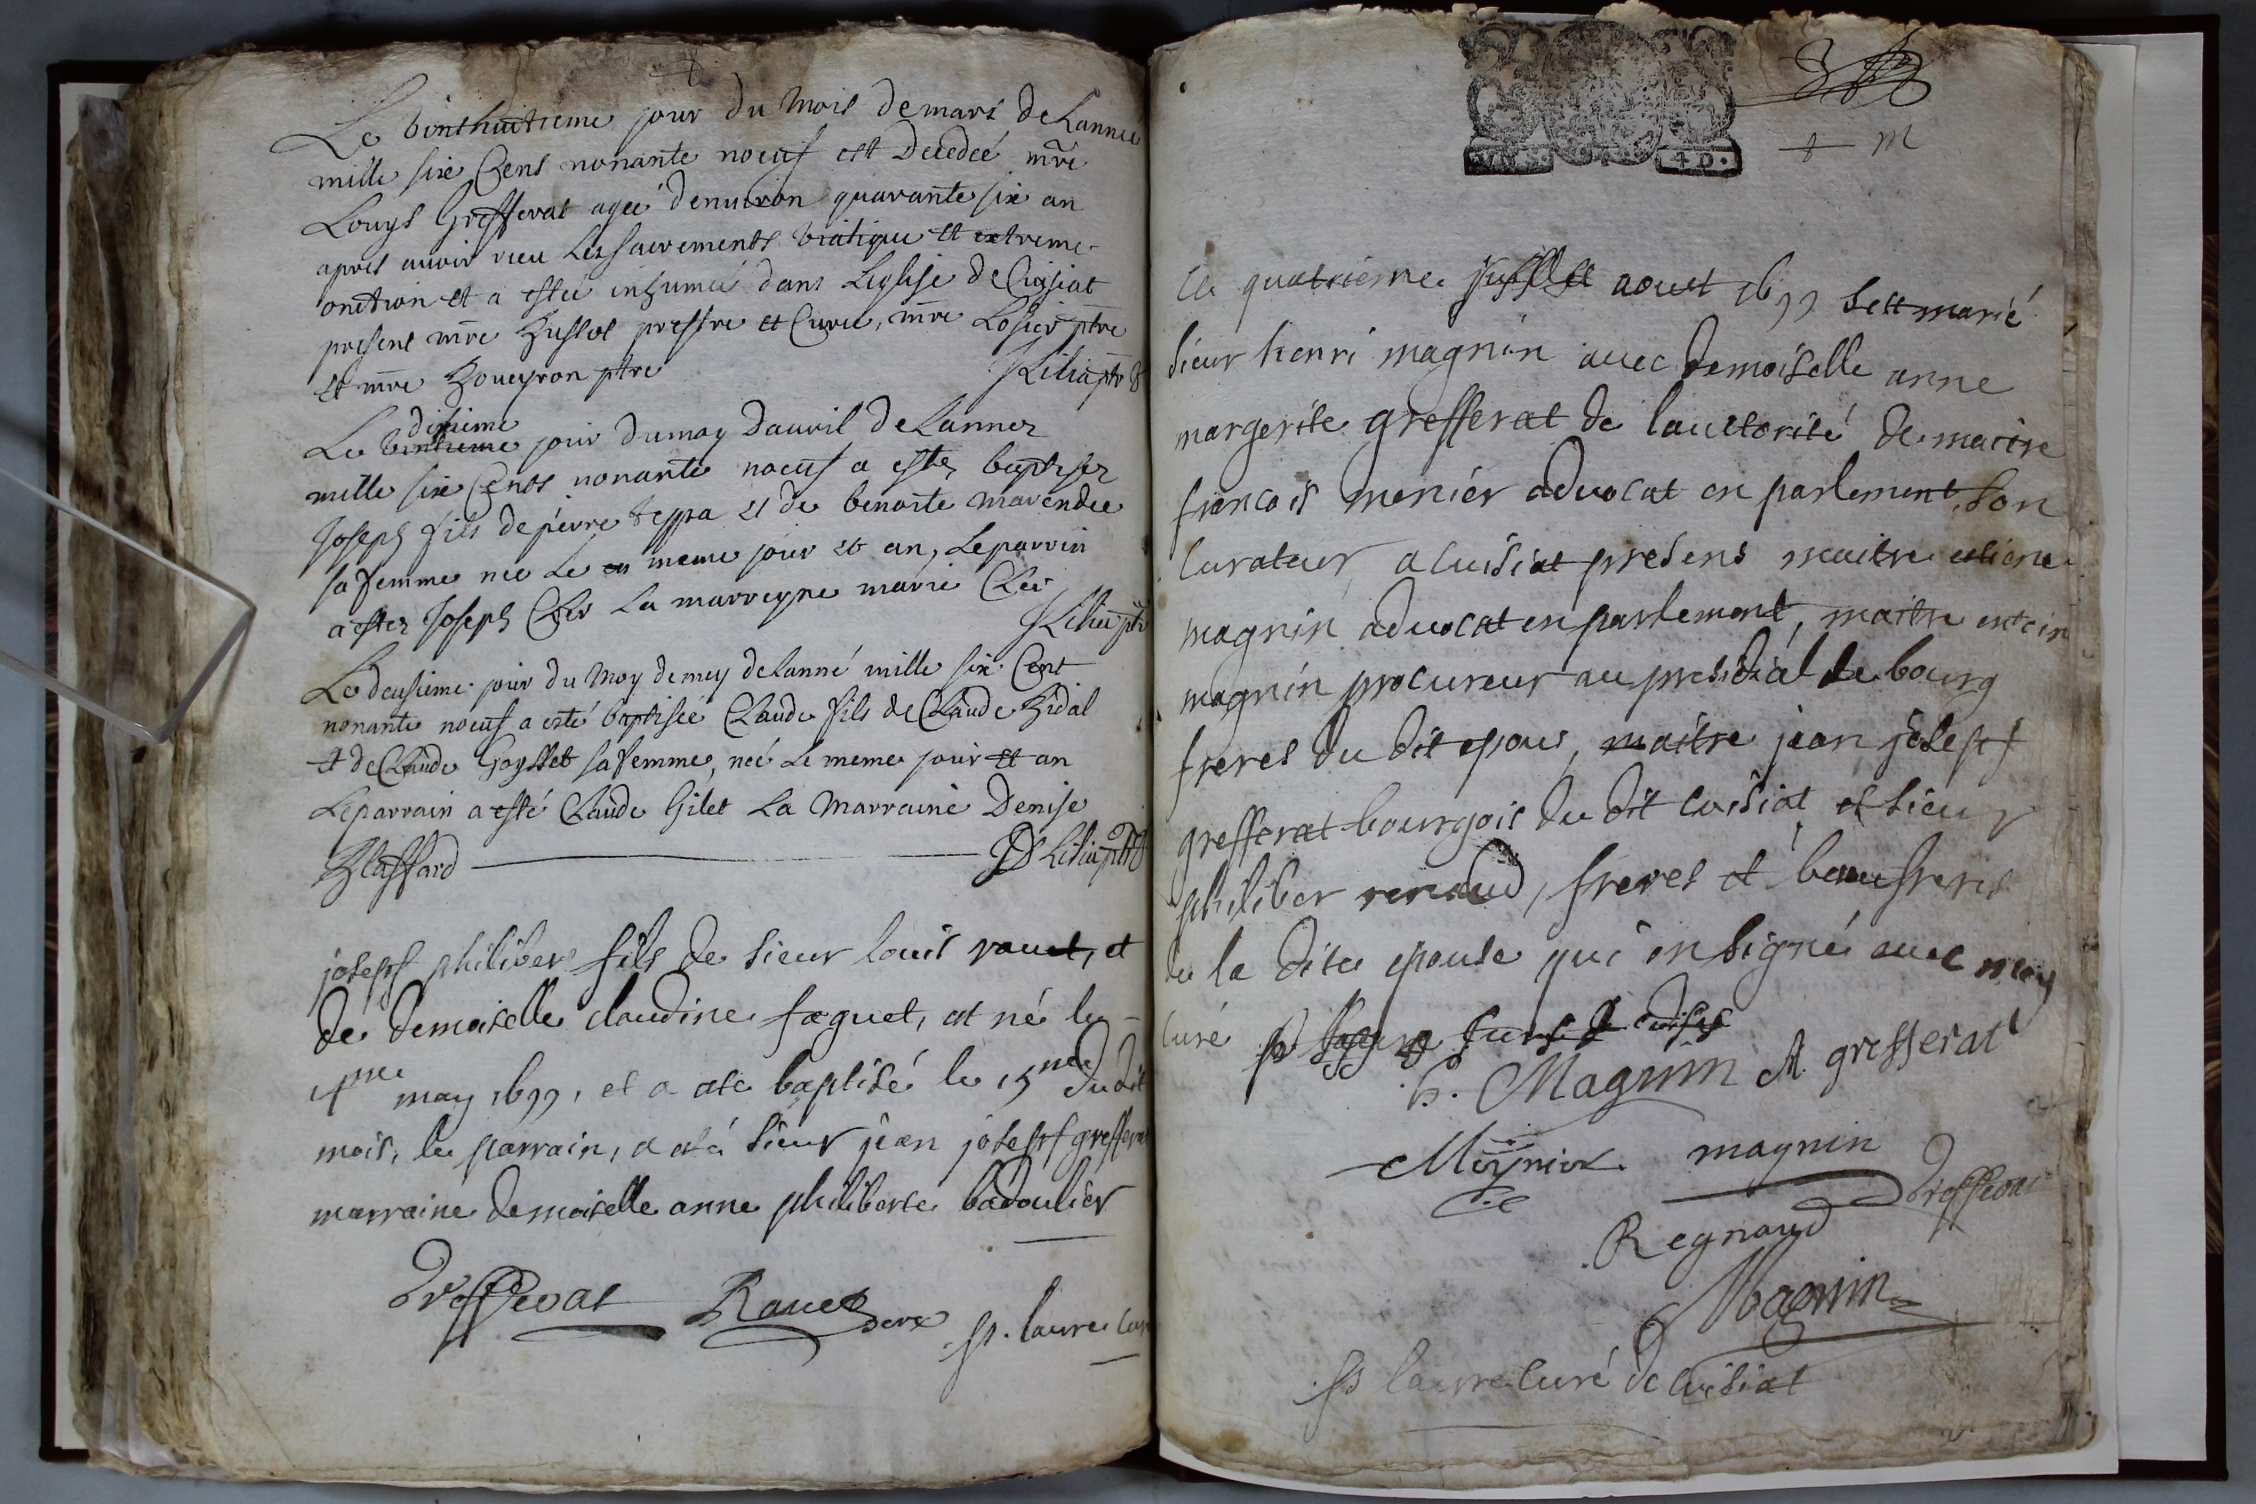 Le vinthuittieme jour du mois de mars de Lannee
mille six Cens nonante noeuf est decedeé mre
Louys Grefferat ageé denuiron quarante six an
apres auoir receu Les sacrements viatique et extreme
onction et a esteé inhumeé dans Leglise de Cuisiat
present mre prestre et Curé, mre ptre
et mre ptre
dixieme
Le vintieme jour du moy dauril de Lannez
mille six Cents nonante noeuf a estez baptisez
Joseph fils de pierre teppa et de benoite
sa femme née Le en meme jour et an, Le parrin
a estez Joseph Cler La marreyne marie Cler
Le deusieme jour du moy de mey de Lanné mille six Cent
nonante noeuf a esté baptiseé Claude fils de Claude Vidal
et de Claude Goyffet sa femme, neé Le meme jour et an
Le parrain a esté Claude Gilet La Marraine Denise
joseph philiber fils de sieur louis rauet, et
de demoiselle claudine faguet, est né le
may 1699, et a ete baptisé le 15me du dit
mois, le parrain, a eté sieur jean joseph grefferat
marraine demoiselle anne philiberte badoulier
Grefferat Rauet p. laure Curé
+ m
Le quatrieme juillet aout 1699 sest marié
sieur henri magnin auec demoiselle anne
margerite grefferat de lauctorité de maitre
francois menier aduocat en parlement, son
curateur, a cuisiat presens maitre etiene
magnin aduocat en parlement, maitre
magnin procureur au presidial de bourg
freres du dit epous, maitre jean joseph
grefferat bourgois du dit cuisiat et sieur
philiber renaud, freres et beaufreres
de la dite epouse qui on signé auec moy
curé
h. Magnin A grefferat
Meynier magnin Grefferat
Regnaud
Magnin
p laure curé de cuisiat